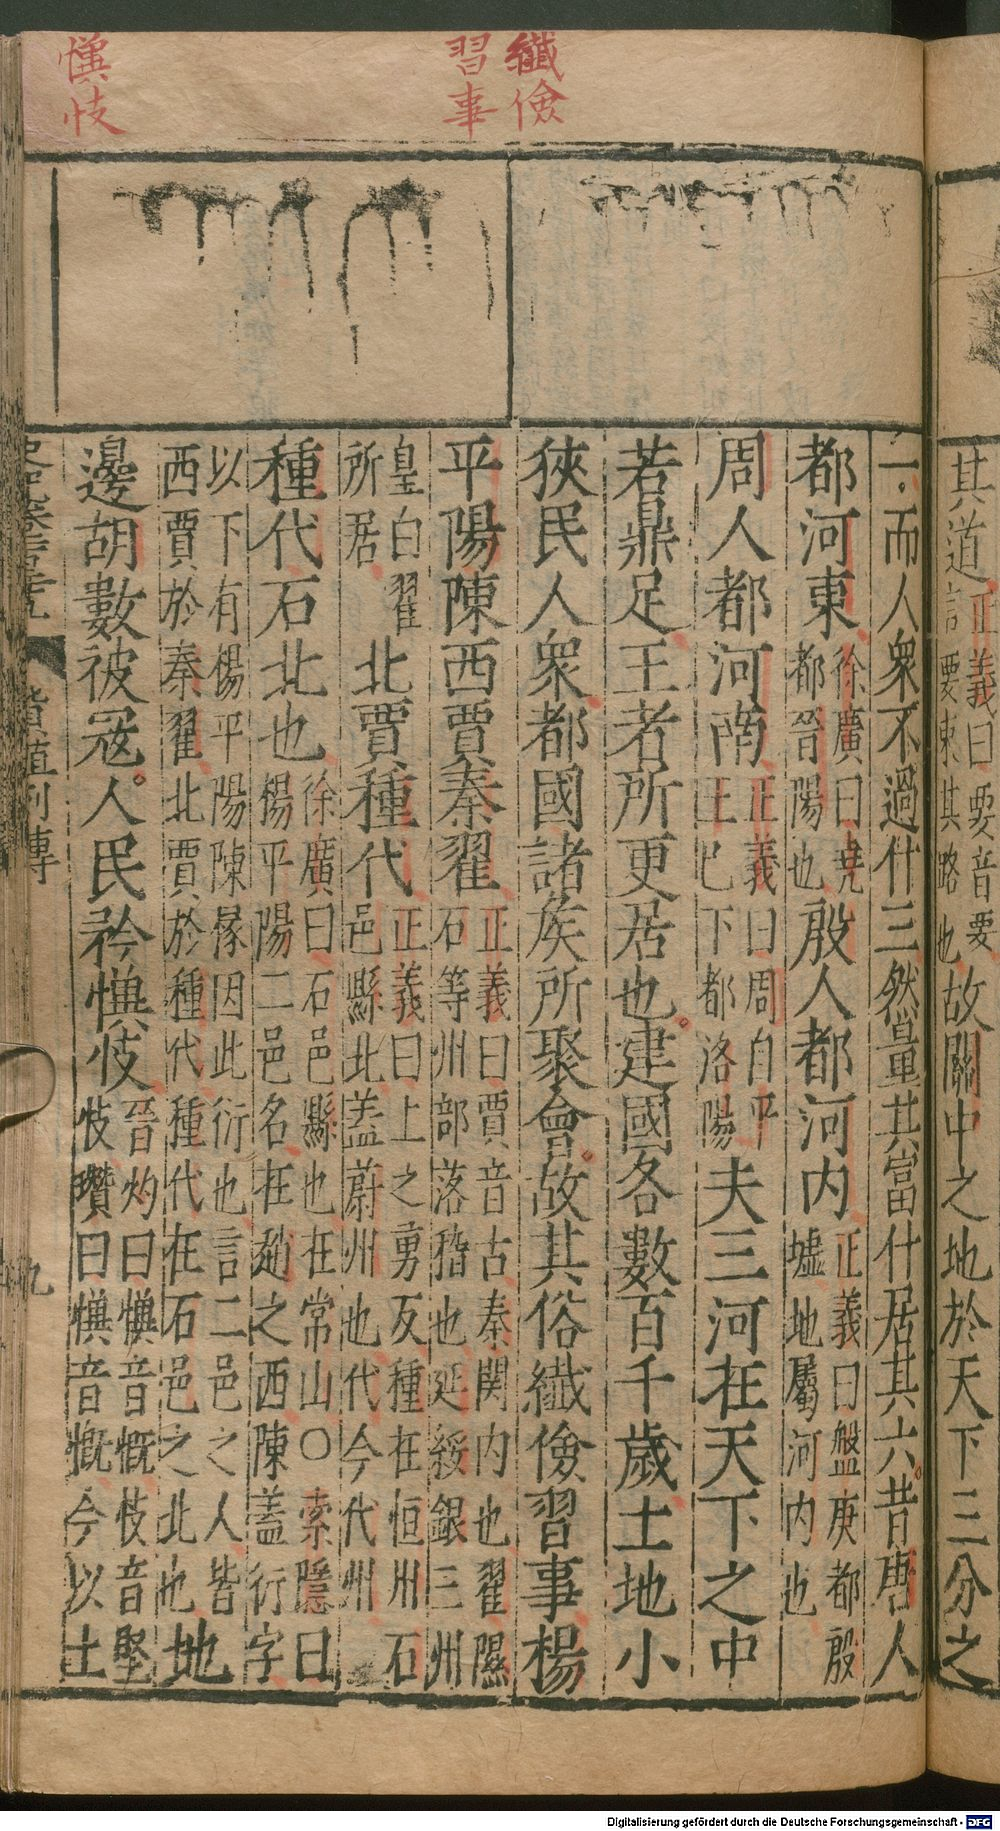 纖儉
習事
懻忮
其道正義曰要音要
言要束其路也故關中之地於天下三分之
一而人衆不過什三然量其富什居其六昔唐人
都河東徐廣曰堯
都晉陽也殷人都河内正義曰盤庚都殷
墟地屬河内也
周人都河南正義曰周自平
王已下都洛陽夫三河在天下之中
若鼎足王者所更居也建國各數百千歲土地小
狹民人衆都國諸矦所聚會故其俗纖儉習事楊
平陽陳西賈秦翟正義曰賈音古秦関内也翟隰
石等州部落稽也延綏銀三州
皇白翟
所居北賈種代正義曰上之勇反種在恒州石
邑縣北蓋蔚州也代今代州
種代石北也徐廣曰石邑縣也在常山○索隱曰
楊平陽二邑名在趙之西陳蓋衍字
以下有楊平陽陳掾因此衍也言二邑之人皆
西賈於秦翟北賈於種代種代在石邑之北也地
邊胡數被冦人民矜懻忮晉灼曰懻音慨忮音堅
忮瓚曰懻音慨今以土
貨殖列傳
九
Digitalisierung gefördert durch die Deutsche Forschungsgemeinschaft - DFG